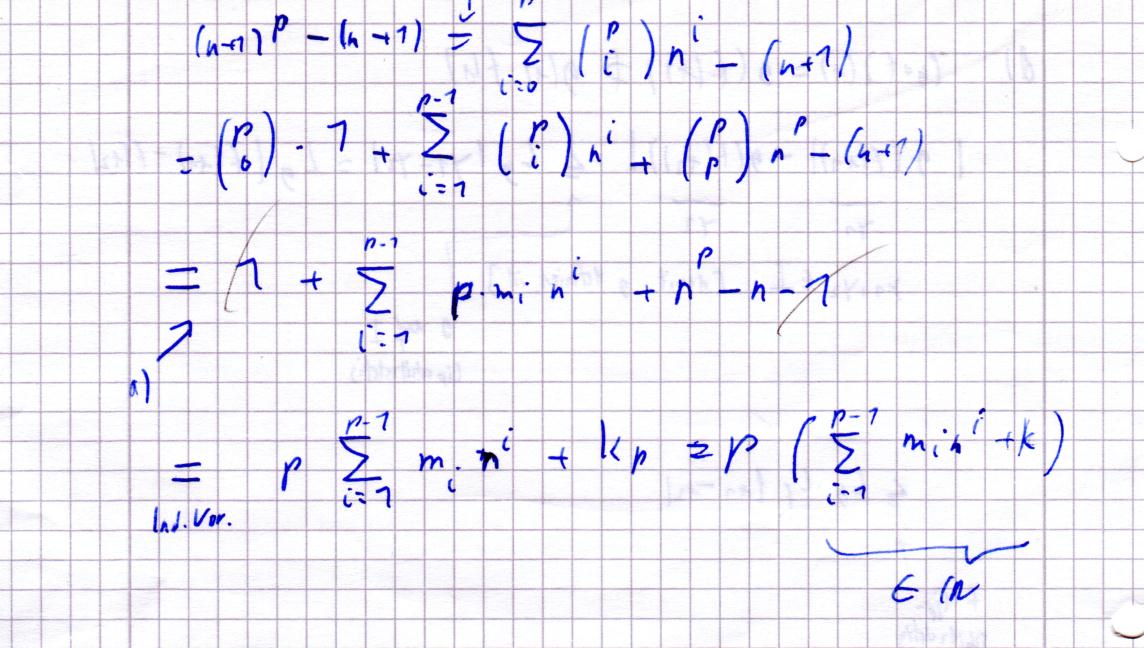 (n+1)^p - (n+1) = ∑_{i=0} (p i) n^i - (n+1)
= (p 0) · 1 + ∑_{i=1}^{p-1} (p i) n^i + (p p) n^p - (n+1)
= 1 + ∑_{i=1}^{p-1} p·m_i n^i + n^p - n - 1
a)
= p ∑_{i=1}^{p-1} m_i n^i + kp = p (∑_{i=1}^{p-1} m_i n^i + k)
Ind. Vor.
∈ ℕ